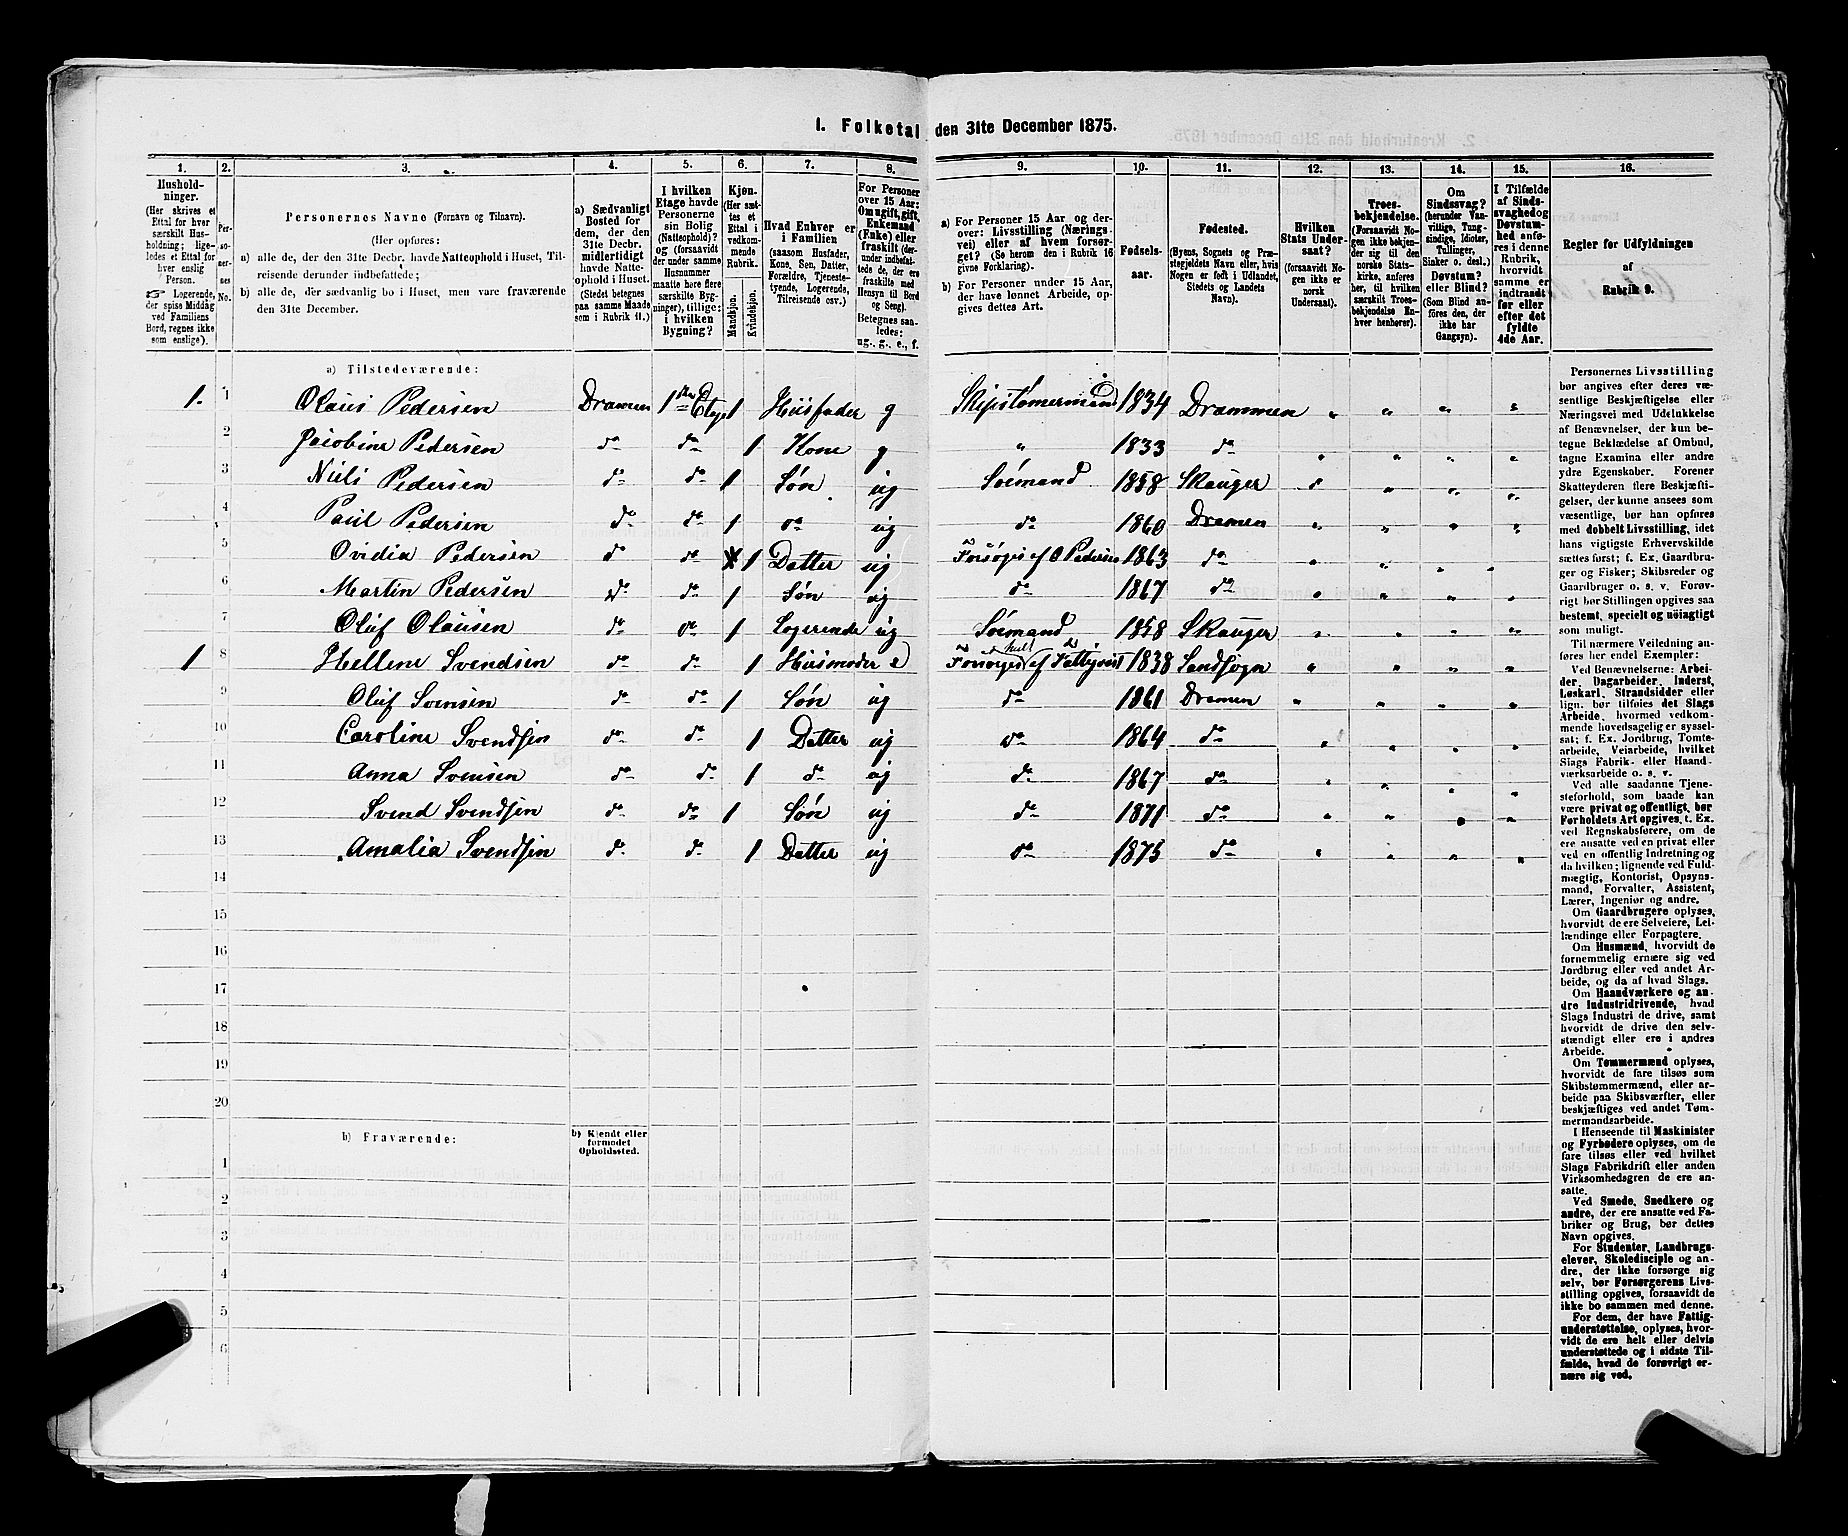 1. Folketal den 31te December 1875.
1. 2. 3. 4. 5. 6. 7. 8. 9. 10. 11. 12. 13. 14. 15. 16.
Husholdninger.
(Her skrives et
Ettal for hver
særskilt Husholdning;
ligeledes et Ettal for
hver enslig
Person.
☞ Logerende,
der spise Middag
ved Familiens
Bord, regnes ikke
som enslige).
Personernes No.
Personernes Navne (Fornavn og Tilnavn).
(Her opføres:
a) alle de, der den 31te Decbr. havde Natteophold i Huset, Tilreisende derunder indbefattede;
b) alle de, der sædvanlig bo i Huset, men vare fraværende
den 31te December.
a) Sædvanligt
Bosted for
dem, der den
31te Decbr.
midlertidigt
havde Natteophold i Huset.
(Stedet betegnes
paa samme Maade
som i Rubrik 11.)
I hvilken
Etage havde
Personerne
sin Bolig
(Natteophold)?
og (forsaavidt
der under samme
Husnummer
maatte høre flere
særskilte Bygninger), tillige:
i hvilken
Bygning?
Kjøn.
(Her sættes et
Ettal i
vedkommende
Rubrik.
Mandkjøn.
Kvindekjøn.
Hvad Enhver er
i Familien
(saasom Husfader,
Kone, Søn, Datter,
Forældre, Tjenestetyende, Logerende,
Tilreisende osv.)
For Personer
over 15 Aar:
Om ugift, gift,
Enkemand
(Enke) eller
fraskilt (derunder indbefattede de, der ere
fraskilte med
Hensyn til Bord
og Seng).
Betegnes saaledes:
ug., g., e., f.
a) For Personer 15 Aar og derover: Livsstilling (Næringsvei) eller af hvem forsørget? (Se herom den i Rubrik 16
givne Forklaring).
b) For Personer under 15 Aar,
der have lønnet Arbeide, opgives dettes Art.
Fødselsaar.
Fødested.
(Byens, Sognets og Præstegjeldets Navn eller, hvis
Nogen er født i Udlandet,
Stedets og Landets
Navn).
Hvilken
Stats Undersaat?
(forsaavidt Nogen ikke er
norsk
Undersaat).
Troesbekjendelse.
(Forsaavidt Nogen ikke bekjender sig til den
norske Statskirke, anføres
her, til hvilken
særskilt Troesbekjendelse Enhver henhører).
Om
Sindssvag?
(herunder Vanvittige, Tungsindige, Idioter,
Tullinger,
Sinker o. desl.)
Døvstum?
eller Blind?
(Som Blind anføres den, der
ikke har
Gangsyn).
I Tilfælde
af Sindssvaghed og
Døvstumhed anføres i denne
Rubrik,
hvorvidt
samme er
indtraadt
før eller
efter det
fyldte
4de Aar.
Regler for Udfyldningen
af
Rubrik 9.
a) Tilstedeværende:
1. 1 Olaus Pedersen Dramen 1ste Etage 1 Huusfader g Skipstømermand 1834 Drammen " " " "
2 Jacobine Pedersen do do 1 Kone g " 1833 do " " " "
3 Niels Pedersen do do 1 Søn ug Sømand 1858 Skauger " " " "
4 Paul Pedersen do do 1 do ug do 1860 Dramen " " " "
5 Ovidia Pedersen do do 1 Datter ug Forsørges af O Pedersen 1863 do " " " "
6 Martin Pedersen do do 1 Søn ug do 1867 do " " " "
7 Oluf Olausen do do 1 Logerende ug Sømand 1858 Skauger " " " "
1 8 Hellene Svendsen do do 1 Huusmoder e Forsørges af 1838 Sandsogn " " " "
9 Oluf Svensen do do 1 Søn ug do 1861 Dramen " " " "
10 Caroline Svendsen do do 1 Datter ug do 1864 do " " " "
11 Anna Svensen do do 1 do ug do 1867 do " " " "
12 Svend Svendsen do do 1 Søn ug do 1871 do " " " "
13 Amalia Svendsen do do 1 Datter ug do 1875 do " " " "
14
15
16
17
18
19
20
b) Fraværende:
b) Kjendt eller
formodet
Opholdssted.
1
2
3
4
5
6
Personernes Livsstilling
bør angives efter deres væsentlige Beskjæftigelse eller
Næringsvei med Udelukkelse
af Benævnelser, der kun betegne Beklædelse af Ombud,
tagne Examina eller andre
ydre Egenskaber. Forener
Skatteyderen flere Beskjæftigelser, der kunne ansees som
væsentlige, bør han opføres
med dobbelt Livsstilling, idet
hans vigtigste Erhvervskilde
sættes først; f. Ex. Gaardbruger og Fisker; Skibsreder og
Gaardbruger o. s. v. Forøvrigt bør Stillingen opgives saa
bestemt, specielt og nøiagtigt
som muligt.
Til nærmere Veiledning anføres her endel Exempler:
Ved Benævnelserne: Arbeider, Dagarbeider, Inderst,
Løskarl, Strandsidder eller
lign. bør tilføies det Slags
Arbeide, hvormed vedkommende hovedsagelig er sysselsat; f. Ex. Jordbrug, Tomtearbeide, Veiarbeide, hvilket
Slags Fabrik- eller Haandværksarbeide o. s. v.
Ved alle saadanne Tjenesteforhold, som baade kan
være privat og offentligt, bør
Forholdets Art opgives, t. Ex.
ved Regnskabsførere, om de
ere ansatte ved en privat eller
ved en offentlig Indretning og
da hvilken; lignende ved Fuldmægtig, Kontorist, Opsynsmand, Forvalter, Assistent,
Lærer, Ingeniør og andre.
Om Gaardbrugere oplyses,
hvorvidt de ere Selveiere, Leilændinge eller Forpagtere.
Om Husmænd, hvorvidt de
fornemmelig ernære sig ved
Jordbrug eller ved andet Arbeide, og da af hvad Slags.
Om Haandværkere og andre Industridrivende, hvad
Slags Industri de drive, samt
hvorvidt de drive den selvstændigt eller ere i andres
Arbeide.
Om Tømmermænd oplyses,
hvorvidt de fare tilsøs som
Skibstømmermænd, eller arbeide paa Skibsværfter, eller
beskjæftiges ved andet Tømmermandsarbeide.
I Henseende til Maskinister
og Fyrbødere oplyses, om de
fare tilsøs eller ved hvilket
Slags Fabrikdrift eller anden
Virksomhedsgren de ere ansatte.
Ved Smede, Snedkere og
andre, der ere ansatte ved Fabriker og Brug, bør dettes
Navn opgives.
For Studenter, Landbrugselever, Skoledisciple og andre, der ikke forsørge sig
selv, bør Forsørgerens Livsstilling opgives, forsaavidt de
ikke bo sammen med denne.
For dem, der have Fattigunderstøttelse, oplyses, hvorvidt de ere helt eller delvis
understøttede og i sidste Tilfælde, hvad de forøvrigt ernære sig ved.